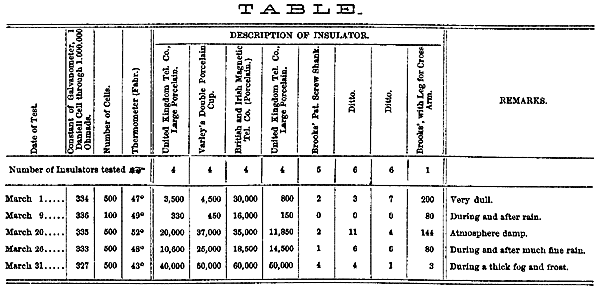 TABLE.
DESCRIPTION OF INSULATOR.
Date of Test.
Constant of Galvanometer, 1 Daniell Cell through 1.000.000 Ohmads.
Number of Cells.
Thermometer (Fahr.)
United Kingdom Tel. Co., Large Porcelain.
Varley's Double Porcelain Cup.
British and Irish Magnetic Tel. Co. (Porcelain.)
United Kingdom Tel. Co., Large Porcelain.
Brooks' Pat. Screw Shank.
Ditto.
Ditto.
Brooks', with Leg for Cross Arm.
REMARKS.
Number of Insulators tested 4 4 4 4 5 6 6 1
March 1..... 334 500 47° 3,500 4,500 30,000 800 2 3 7 200 Very dull.
March 9..... 336 100 49° 330 450 16,000 150 0 0 0 80 During and after rain.
March 20..... 335 500 52° 20,000 37,000 35,000 11,850 2 11 4 144 Atmosphere damp.
March 26..... 333 500 48° 10,600 25,000 18,500 14,500 1 6 6 80 During and after much fine rain.
March 31..... 327 500 43° 40,000 50,000 60,000 60,000 4 4 1 3 During a thick fog and frost.